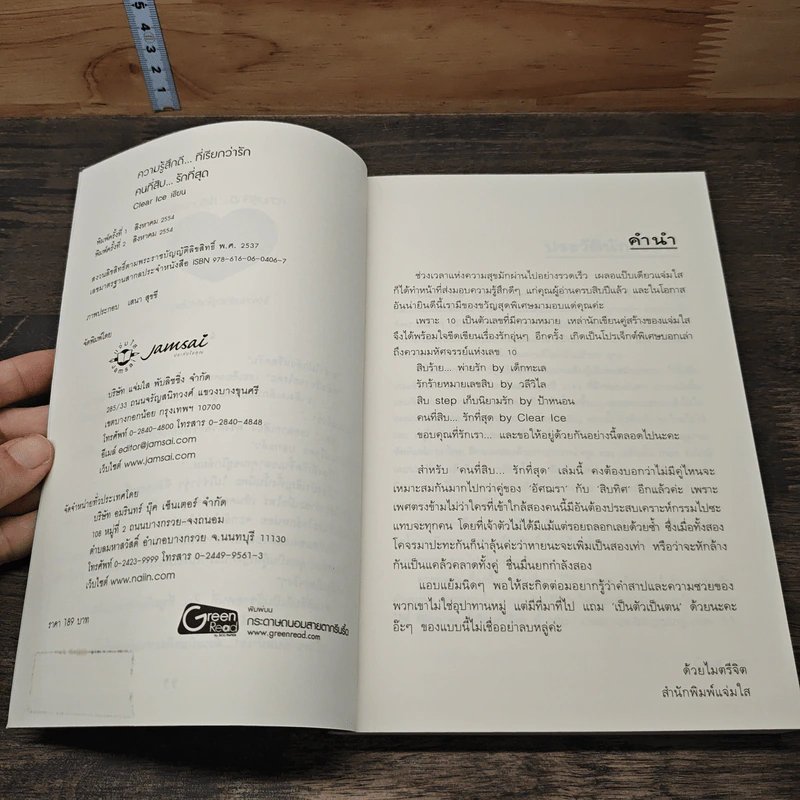 5 4 3 2 1
ความรู้สึกดี... ที่เรียกว่ารัก
คนที่สิบ... รักที่สุด
Clear Ice เขียน
พิมพ์ครั้งที่ 1 สิงหาคม 2554
พิมพ์ครั้งที่ 2 สิงหาคม 2554
สงวนลิขสิทธิ์ตามพระราชบัญญัติลิขสิทธิ์ พ.ศ. 2537
เลขมาตรฐานสากลประจำหนังสือ ISBN 978-616-06-0406-7
ภาพประกอบ เสนา สุขชี
จัดพิมพ์โดย
jamsai
บริษัท แจ่มใส พับลิชชิ่ง จำกัด
285/33 ถนนจรัญสนิทวงศ์ แขวงบางขุนศรี
เขตบางกอกน้อย กรุงเทพฯ 10700
โทรศัพท์ 0-2840-4800 โทรสาร 0-2840-4848
อีเมล์ editor@jamsai.com
เว็บไซต์ www.jamsai.com
จัดจำหน่ายทั่วประเทศโดย
บริษัท อมรินทร์ บุ๊ค เซ็นเตอร์ จำกัด
108 หมู่ที่ 2 ถนนบางกรวย-จงถนอม
ตำบลมหาสวัสดิ์ อำเภอบางกรวย จ.นนทบุรี 11130
โทรศัพท์ 0-2423-9999 โทรสาร 0-2449-9561-3
เว็บไซต์ www.naiin.com
ราคา 189 บาท
Green Read
พิมพ์บน
กระดาษถนอมสายตากรีนรี้ด
www.greenread.com
คำนำ
ช่วงเวลาแห่งความสุขมักผ่านไปอย่างรวดเร็ว เผลอแป๊บเดียวแจ่มใส
ก็ได้ทำหน้าที่ส่งมอบความรู้สึกดีๆ แก่คุณผู้อ่านครบสิบปีแล้ว และในโอกาส
อันน่ายินดีนี้เรามีของขวัญสุดพิเศษมามอบแด่คุณค่ะ
เพราะ 10 เป็นตัวเลขที่มีความหมาย เหล่านักเขียนคู่สร้างของแจ่มใส
จึงได้พร้อมใจขีดเขียนเรื่องรักอุ่นๆ อีกครั้ง เกิดเป็นโปรเจ็กต์พิเศษบอกเล่า
ถึงความมหัศจรรย์แห่งเลข 10
สิบร้าย... พ่ายรัก by เด็กทะเล
รักร้ายหมายเลขสิบ by วลีวิไล
สิบ step เก็บนิยามรัก by ป้าหนอน
คนที่สิบ... รักที่สุด by Clear Ice
ขอบคุณที่รักเรา... และขอให้อยู่ด้วยกันอย่างนี้ตลอดไปนะคะ
สำหรับ 'คนที่สิบ... รักที่สุด' เล่มนี้ คงต้องบอกว่าไม่มีคู่ไหนจะ
เหมาะสมกันมากไปกว่าคู่ของ 'อัศณรา' กับ 'สิบทิศ' อีกแล้วค่ะ เพราะ
เพศตรงข้ามไม่ว่าใครที่เข้าใกล้สองคนนี้มีอันต้องประสบเคราะห์กรรมไปซะ
แทบจะทุกคน โดยที่เจ้าตัวไม่ได้มีแม้แต่รอยถลอกเลยด้วยซ้ำ ซึ่งเมื่อทั้งสอง
โคจรมาปะทะกันก็น่าลุ้นค่ะว่าหายนะจะเพิ่มเป็นสองเท่า หรือว่าจะหักล้าง
กันเป็นแคล้วคลาดทั้งคู่ ชื่นมื่นยกกำลังสอง
แอบแย้มนิดๆ พอให้สะกิดต่อมอยากรู้ว่าคำสาปและความซวยของ
พวกเขาไม่ใช่อุปาทานหมู่ แต่มีที่มาที่ไป แถม 'เป็นตัวเป็นตน' ด้วยนะคะ
อ๊ะๆ ของแบบนี้ไม่เชื่ออย่าลบหลู่ค่ะ
ด้วยไมตรีจิต
สำนักพิมพ์แจ่มใส